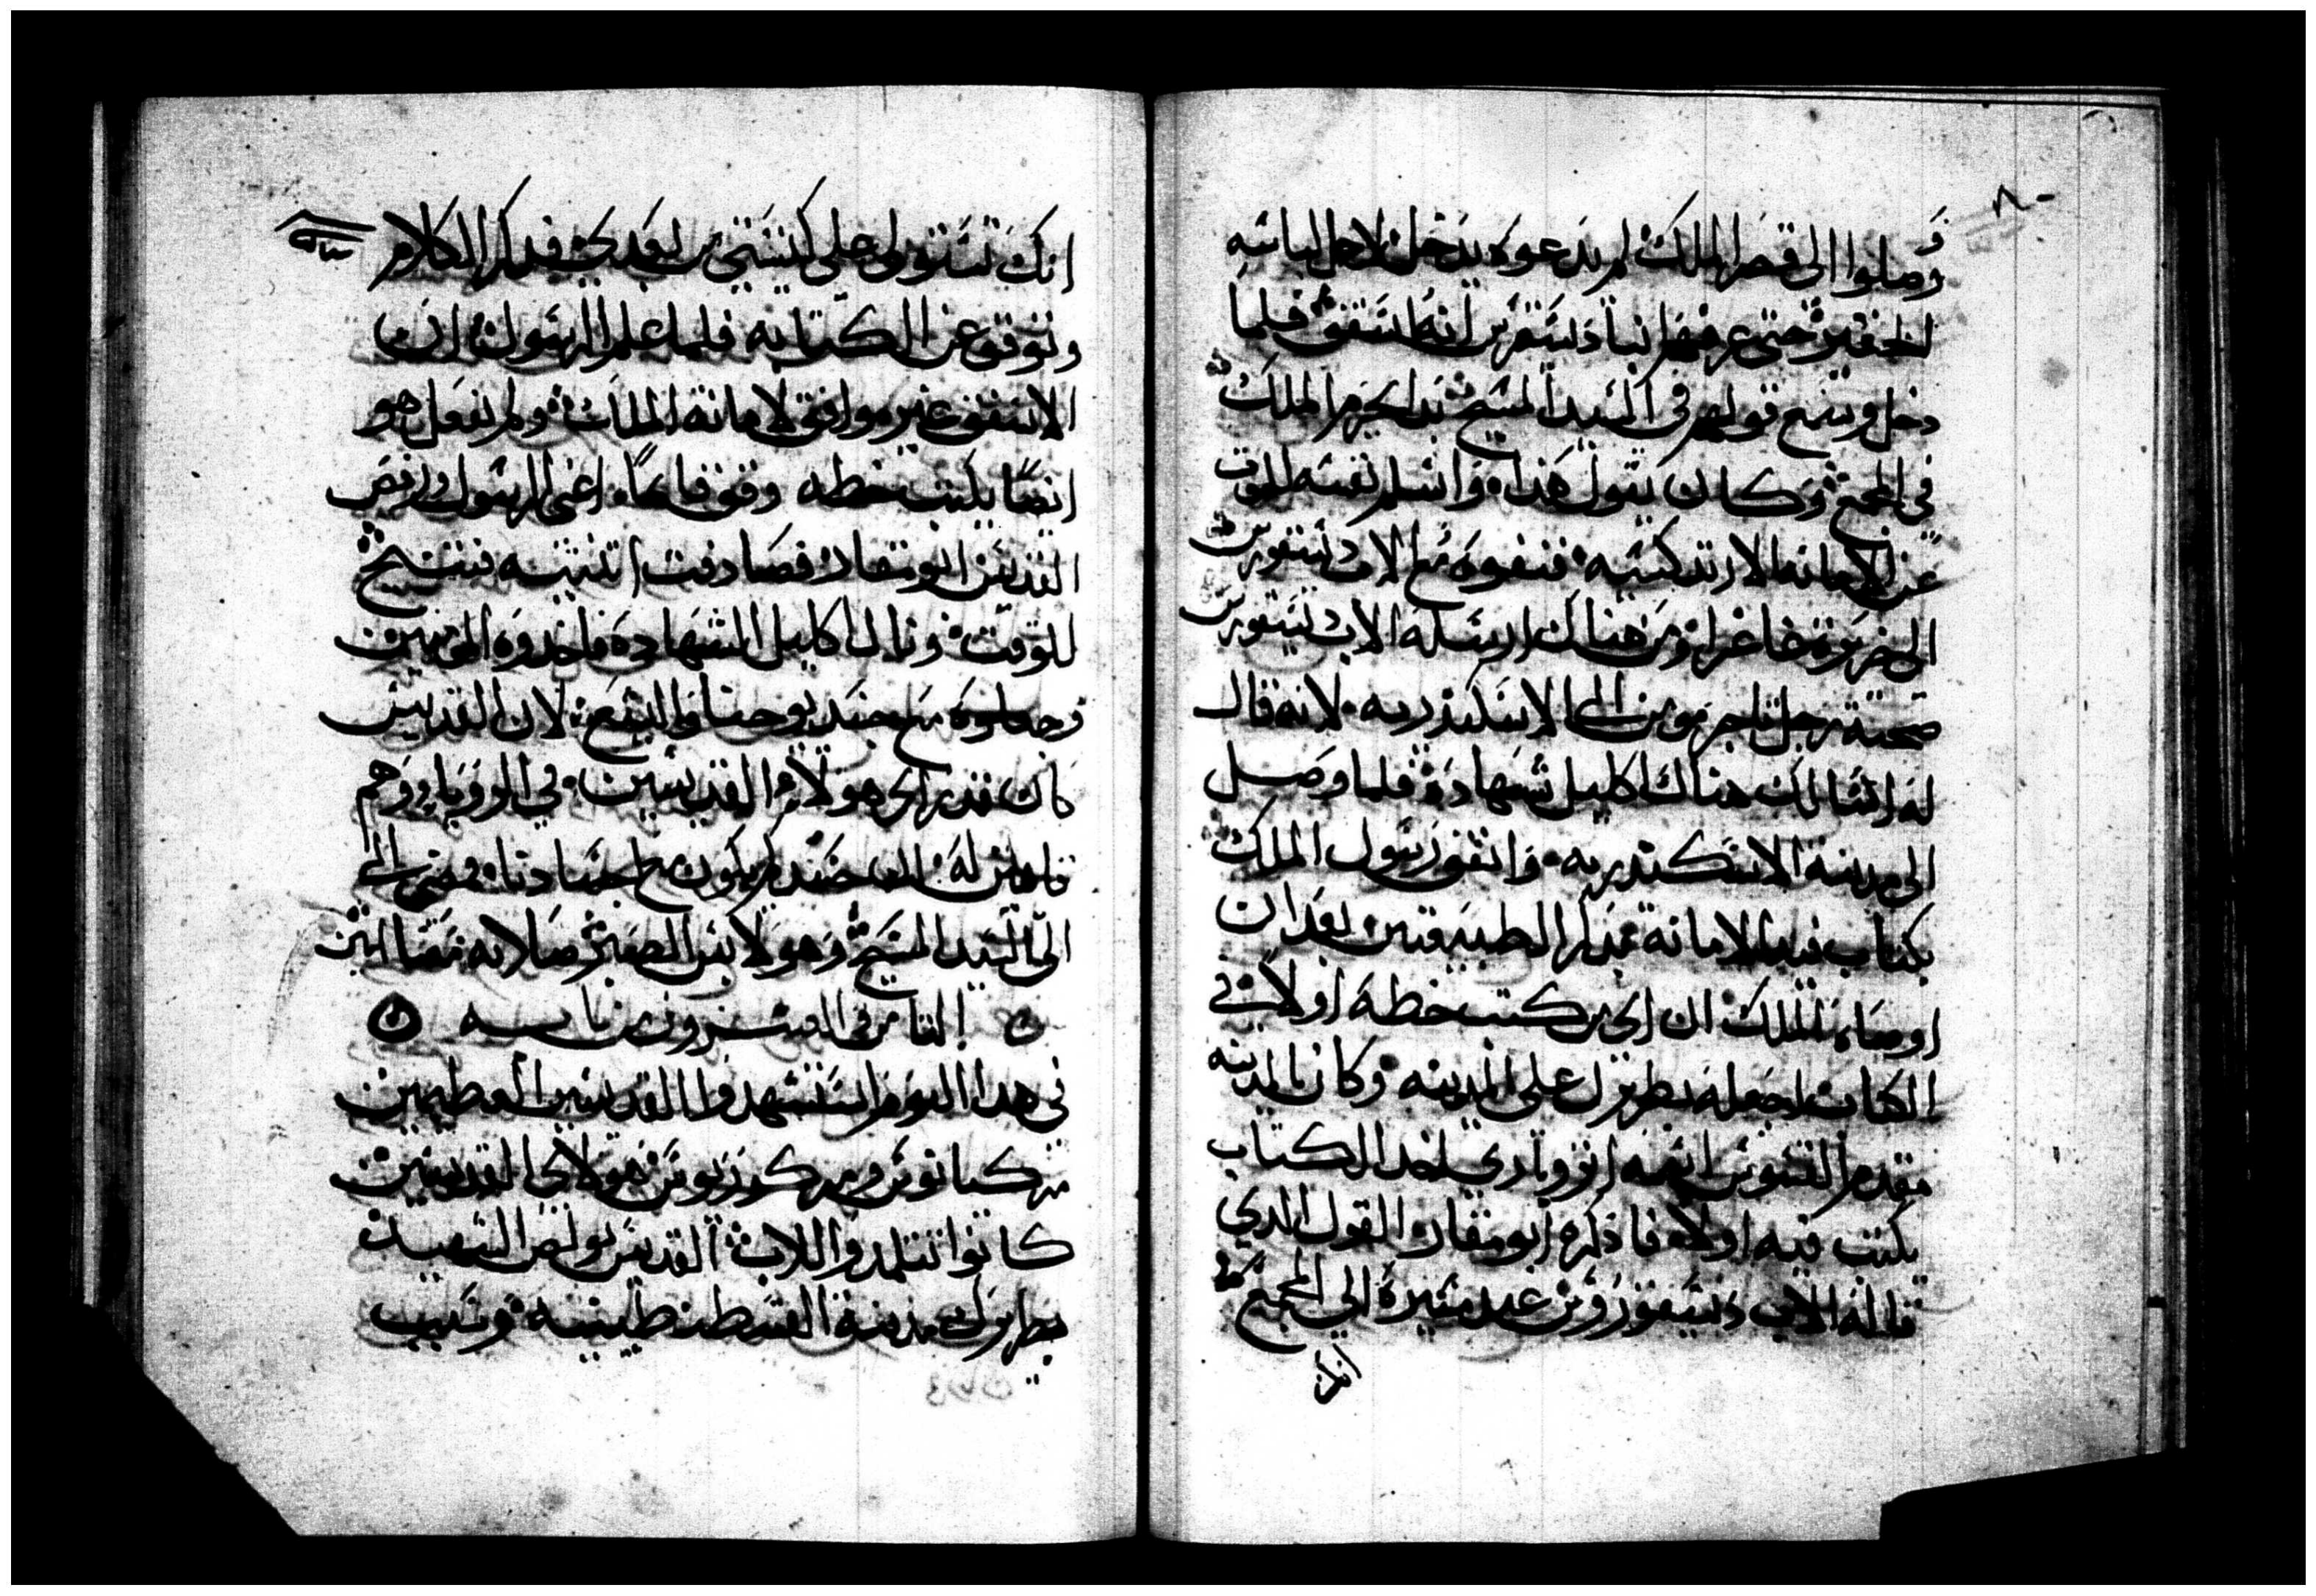 وصلوا الى قصر الملك لم يدعوه يدخل لاجل لباسه
الحقير حتى عرفهم انبا ديسقرس انه اسقف فلما
دخل وسمع قولهم في السيد المسيح بدا يحرم الملك
في المجمع وكان يقول هذا وانسلم نفسه للموت
عن الامانه الارتدكسيه فنفوه مع الاب ديسقورس
الى جزيرة غاغرا ومن هناك ارسله الاب ديسقورس
صحبة رجل تاجر مومن الى الاسكندريه لانه قال
له انت لك هناك اكليل شهادة فلما وصل
الى مدينة الاسكندريه واتفق رسول الملك
بكتاب فيه الامانة بمدا الطبيعتين بعد ان
اوصاه الملك ان اي من كتب خطه اولا في
الكتاب اجعله بطريرك على المدينه وكان بالمدينه
مقدم القسوس اسمه ابروتاري اخد الكتاب
يكتب فيه اولا فاذكره ابو مقار القول الدي
قاله الاب ديسقوروس عند مسيره الي المجمع
انك
انك تستولى على كنيستي من بعدي فدكر الكلام
وتوقف عن الكتابه فلما علم الرسول ان
الاسقف غير موافق لامانة الملك ولم يفعل هو
ايضا يكتب خطه وقف قايما اعني الرسول ورفص
القديس ابو مقار فصادفت انثييه فتنيح
للوقت ونال اكليل الشهادة فاخدوه المومنين
وجعلوه مع جسد يوحنا واليشع لان القديس
كان قد راى هولاء القديسين في الرويا وهم
قايلين له ان جسدك يكون مع اجسادنا ومضى الى
الى السيد المسيح وهو لابس الظفر صلاته معنا امين
الثامن والعشرون من بابه
في هدا اليوم استشهدوا القديسين العظيمين
مركيانوس ومركوريوس هولاي القديسين
كانوا تتلمدوا للاب القديس بولص الشهيد
بطريرك مدينة القسطنطينية وسبب